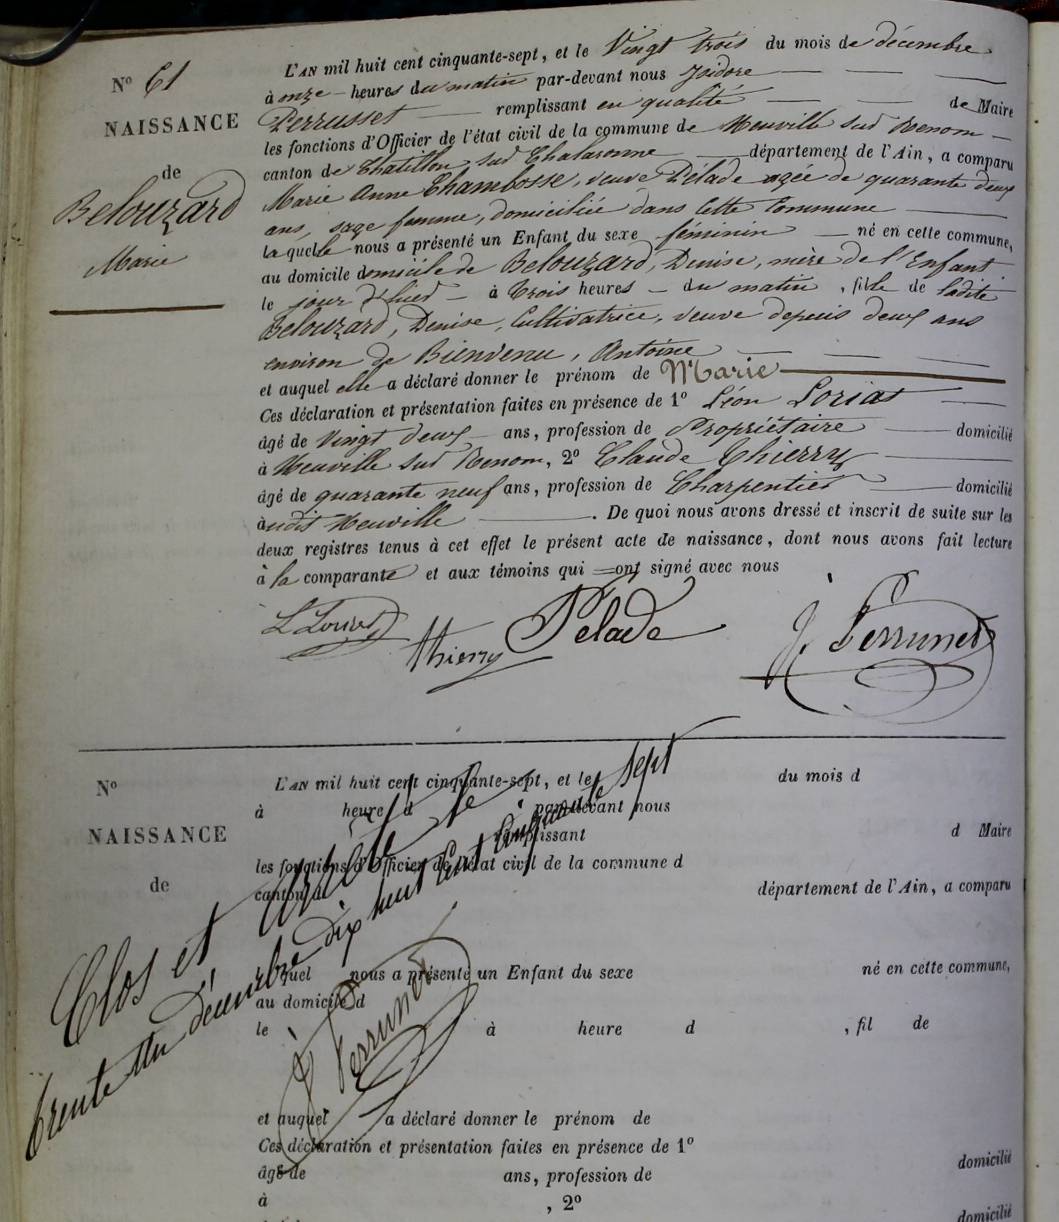 N° 61
NAISSANCE
de
Belouzard
Marie
L'AN mil huit cent cinquante-sept, et le Vingt trois du mois de décembre
à onze heures du matin par-devant nous Isidore
Perrusset remplissant en qualité de Maire
les fonctions d'Officier de l'état civil de la commune de Neuville sur Renom
canton de Chatillon sur Chalaronne département de l'Ain, a comparu
Marie Anne Chambosse, veuve Pélade agée de quarante deux
ans, sage femme, domiciliée dans cette Commune
laquelle nous a présenté un Enfant du sexe féminin né en cette commune,
au domicile domicile de Belouzard, Denise, mère de l'Enfant
le jour d'hier à trois heures du matin, fille de ladite
Belouzard, Denise, Cultivatrice, veuve depuis deux ans
environ de Bienvenu, Antoine
et auquel elle a déclaré donner le prénom de Marie
Ces déclaration et présentation faites en présence de 1° Léon Loriat
âgé de Vingt deux ans, profession de Propriétaire domicilié
à Neuville sur Renom, 2° Claude Thierry
âgé de quarante neuf ans, profession de Charpentier domicilié
audit Neuville. De quoi nous avons dressé et inscrit de suite sur les
deux registres tenus à cet effet le présent acte de naissance, dont nous avons fait lecture
à la comparante et aux témoins qui ont signé avec nous
L Loriat Thierry Pelade J. Perrusset
N°
NAISSANCE
de
L'AN mil huit cent cinquante-sept, et le du mois d
à heure d par-devant nous
remplissant d Maire
les fonctions d'Officier de l'état civil de la commune d
canton d département de l'Ain, a comparu
quel nous a présenté un Enfant du sexe né en cette commune,
au domicile d
le à heure d , fil de
et auquel a déclaré donner le prénom de
Ces déclaration et présentation faites en présence de 1°
âgé de ans, profession de domicilié
à , 2°
domicilié
Clos et arrêté le
trente un décembre dix huit cent cinquante sept
J. Perrusset